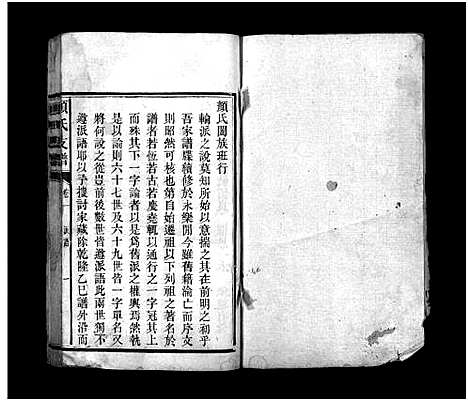 顏氏闔族班行
輪派之說莫知所始以意揣之其在前明之初乎
吾家譜牒續修於永樂間今雖舊籍淪亡而序文
則昭然可核也第自始遷祖以下列祖之著名於
譜者若恆若古若慶堯輒以通行之一字冠其上
而殊其下一字論者以是爲舊派之權輿焉然執
是以論則六十七世及六十九世皆一字單名又
將何說之從豈前後數世皆遵派語此兩世獨不
遵派語耶以孚樓討家藏除乾隆乙巳譜外沿而
顏氏支譜
卷一
一